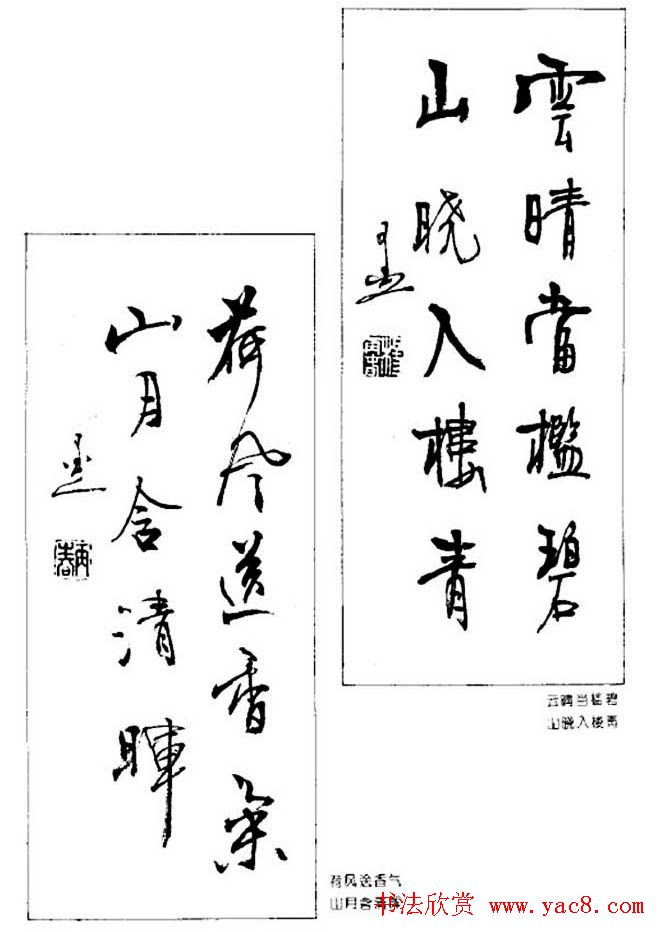 雲晴當檻碧
山晓入樓青
云晴当槛碧
山晓入楼青
荷风送香气
山月含清晖
荷风送香气
山月含清
书法欣赏 www.yac8.com